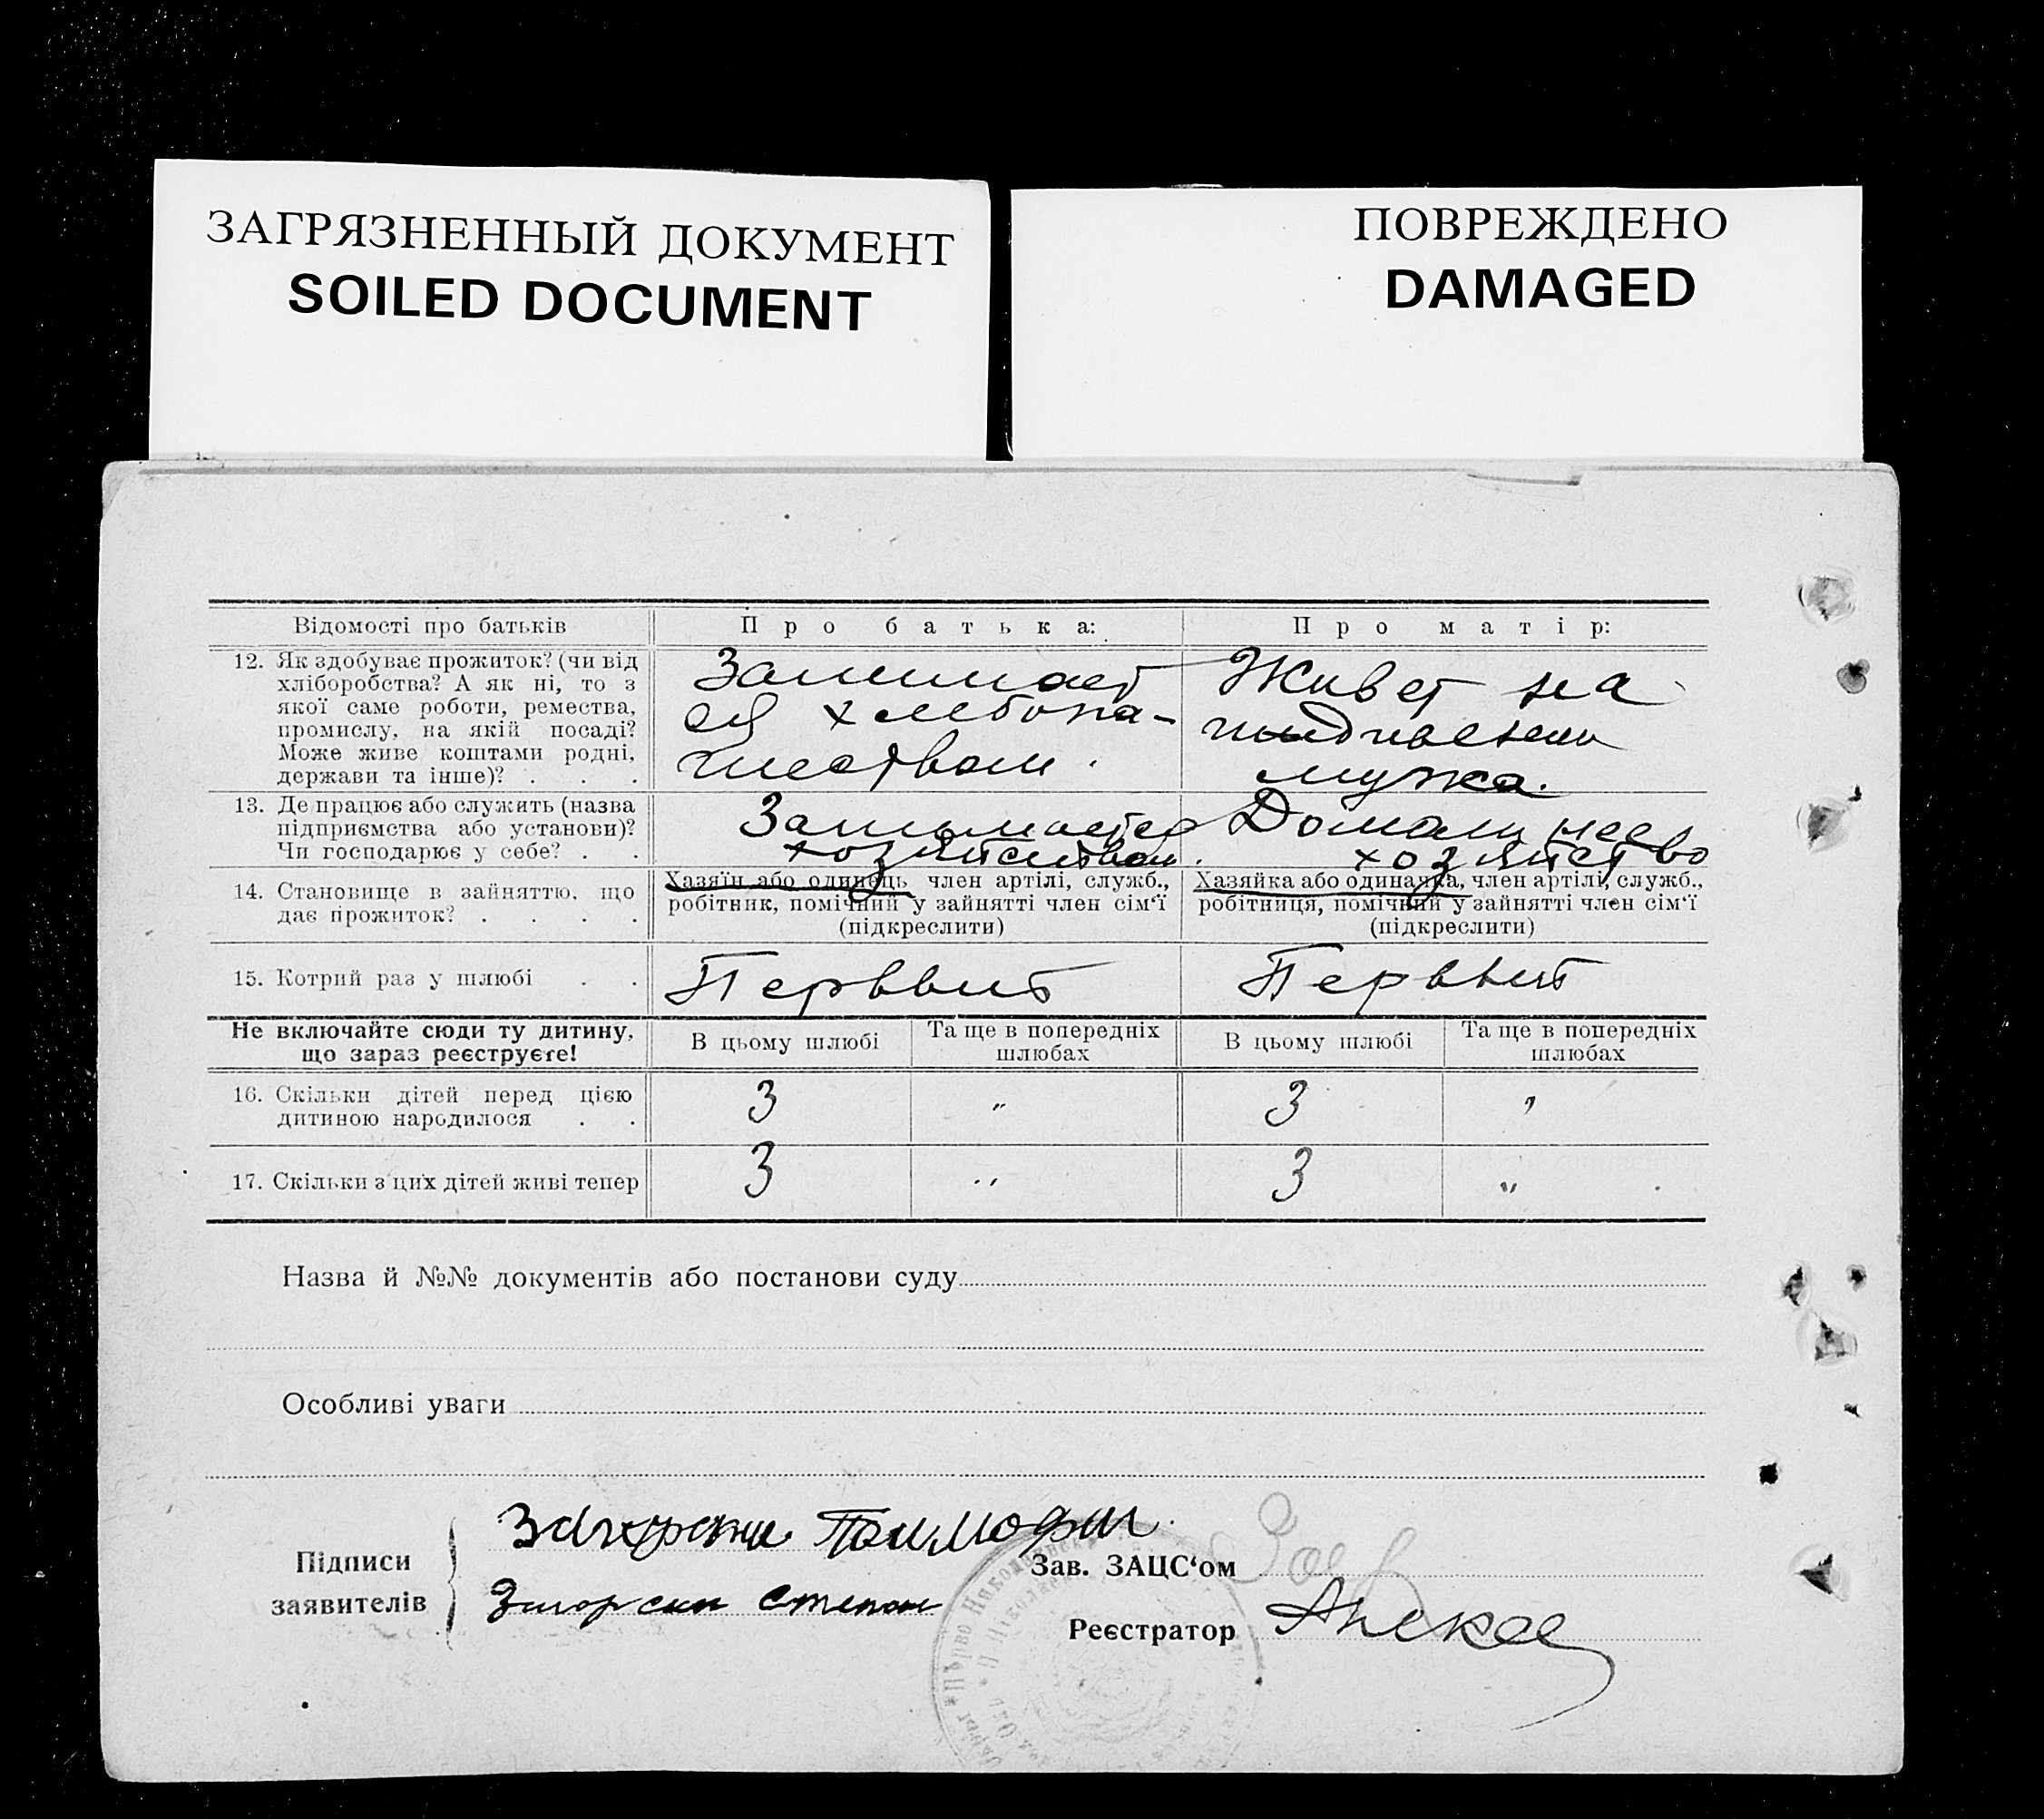 ЗАГРЯЗНЕННЫЙ ДОКУМЕНТ
SOILED DOCUMENT
ПОВРЕЖДЕНО
DAMAGED
Відомості про батьків
Про батька:
Про матір:
12. Як здобуває прожиток? (чи від
хліборобства? А як ні, то з
якої саме роботи, ремества,
промислу, на якій посаді?
Може живе коштами родні,
держави та інше)? . . .
Занимает
ся хлебопа-
шеством.
Живет на
мужа.
13. Де працює або служить (назва
підприємства або установи)?
Чи господарює у себе? . .
Занимается
хозяйством.
хозяйство
14. Становище в зайняттю, що
дає прожиток? . . . .
Хазяїн або одинець, член артілі, служб.,
робітник, помічний у зайнятті член сім'ї
(підкреслити)
Хазяйка або одиначка, член артілі, служб.,
робітниця, помічний у зайнятті член сім'ї
(підкреслити)
15. Котрий раз у шлюбі . .
Не включайте сюди ту дитину,
що зараз реєструєте!
В цьому шлюбі
Та ще в попередніх
шлюбах
В цьому шлюбі
Та ще в попередніх
шлюбах
16. Скільки дітей перед цією
дитиною народилося . .
3
"
3
"
17. Скільки з цих дітей живі тепер
3
"
3
"
Назва й №№ документів або постанови суду
Особливі уваги
Підписи
заявителів
Степан
Зав. ЗАЦС'ом
Реєстратор